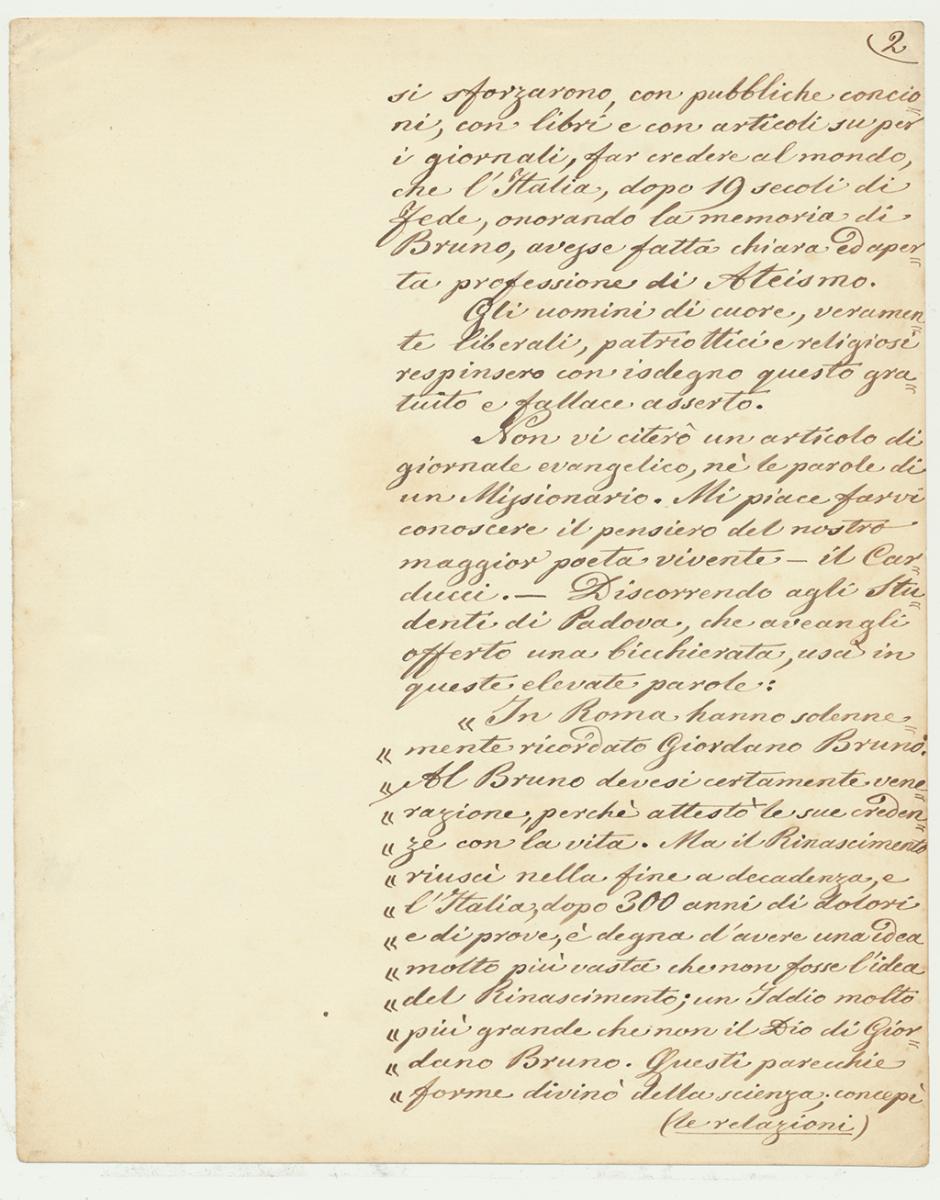 2
si sforzarono, con pubbliche concio=
ni, con libri e con articoli su per
i giornali, far credere al mondo,
che l'Italia, dopo 19 secoli di
Fede, onorando la memoria di
Bruno, avesse fatta chiara ed aper=
ta professione di Ateismo.
Gli uomini di cuore, veramen=
te liberali, patriottici e religiosi
respinsero con isdegno questo gra=
tuito e fallace asserto.
Non vi citerò un articolo di
giornale evangelico, nè le parole di
un Missionario. Mi piace farvi
conoscere il pensiero del nostro
maggior poeta vivente – il Car=
ducci. – Discorrendo agli Stu=
denti di Padova, che aveangli
offerto una bicchierata, uscì in
queste elevate parole:
“ In Roma hanno solenne=
“ mente ricordato Giordano Bruno.
“ Al Bruno devesi certamente vene=
“ razione, perchè attestò le sue creden=
“ ze con la vita. Ma il Rinascimento
“ riuscì nella fine a decadenza, e
“ l'Italia, dopo 300 anni di dolori
“ e di prove, è degna d'avere una idea
“ molto più vasta che non fosse l'idea
“ del Rinascimento; un Iddio molto
“ più grande che non il Dio di Gior=
“ dano Bruno. Questi parecchie
“ forme divinò della scienza, concepì
(le relazioni)